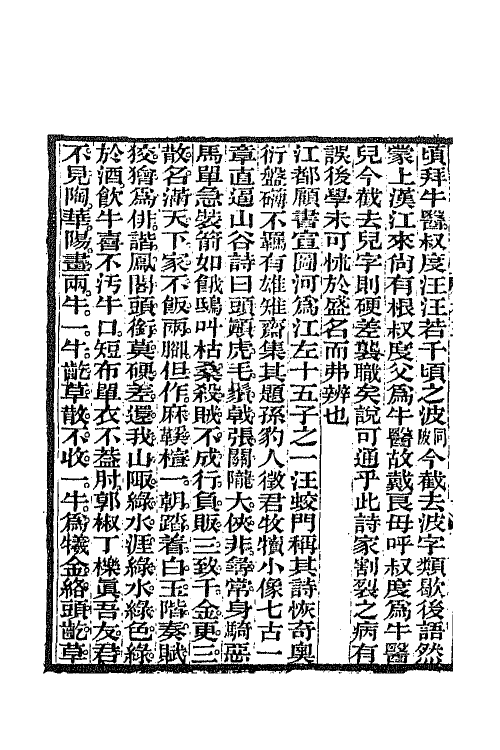 頃拜牛醫叔度汪汪若千頃之波同陂今截去波字類歇後語然
蒙上漢江來尚有根叔度父爲牛醫故戴良母呼叔度爲牛醫
兒今截去兒字則硬差襲職矣說可通乎此詩家割裂之病有
誤後學未可恍於盛名而弗辨也
江都顧書宣圖河爲江左十五子之一汪蛟門稱其詩恢奇奧
衍盤礴不羈有雄雉齋集其題孫豹人徵君牧犢小像七古一
章直逼山谷詩曰頭顱虎毛鬚戟張關隴大俠非尋常身騎惡
馬單急裝箭如餓鴟叫枯桑殺賊不成行負販三致千金更三
散名滿天下家不飯兩腳但作麻鞵楦一朝踏着白玉階奏賦
狡獪爲俳諧鳳閣頭銜莫硬差還我山陬綠水涯綠水綠色綠
於酒飲牛喜不汚牛口短布單衣不葢肘郭椒丁櫟眞吾友君
不見陶華陽畫兩牛一牛齕草散不收一牛爲犧金絡頭齕草